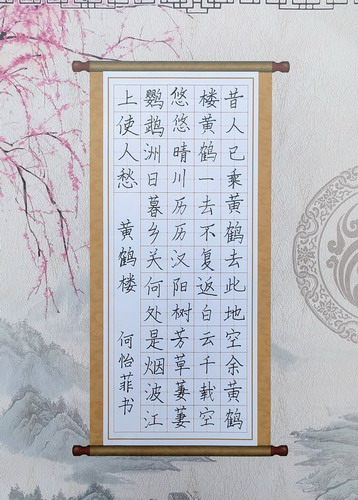 昔人已乘黄鹤去此地空余黄鹤
楼黄鹤一去不复返白云千载空
悠悠晴川历历汉阳树芳草萋萋
鹦鹉洲日暮乡关何处是烟波江
上使人愁 黄鹤楼 何怡菲书